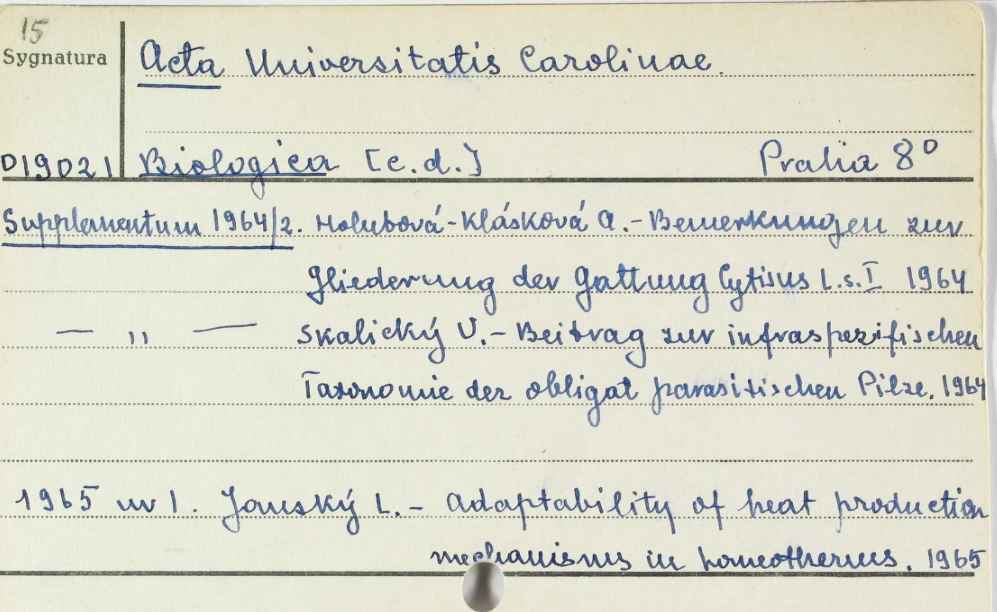 15
Sygnatura
Acta Universitatis Carolinae.
D19021 Biologica [c.d.] Praha 8°
Supplementum 1964/2. Holubová-Klásková A. - Bemerkungen zur
Gliederung der Gattung Cytisus L.s.I 1964
— ,, — Skalický V. - Beitrag zur infraspezifischen
Taxonomie der obligat parasitischen Pilze. 1964
1965 nr 1. Janský L. - Adaptability of heat production
mechanisms in homeotherms. 1965